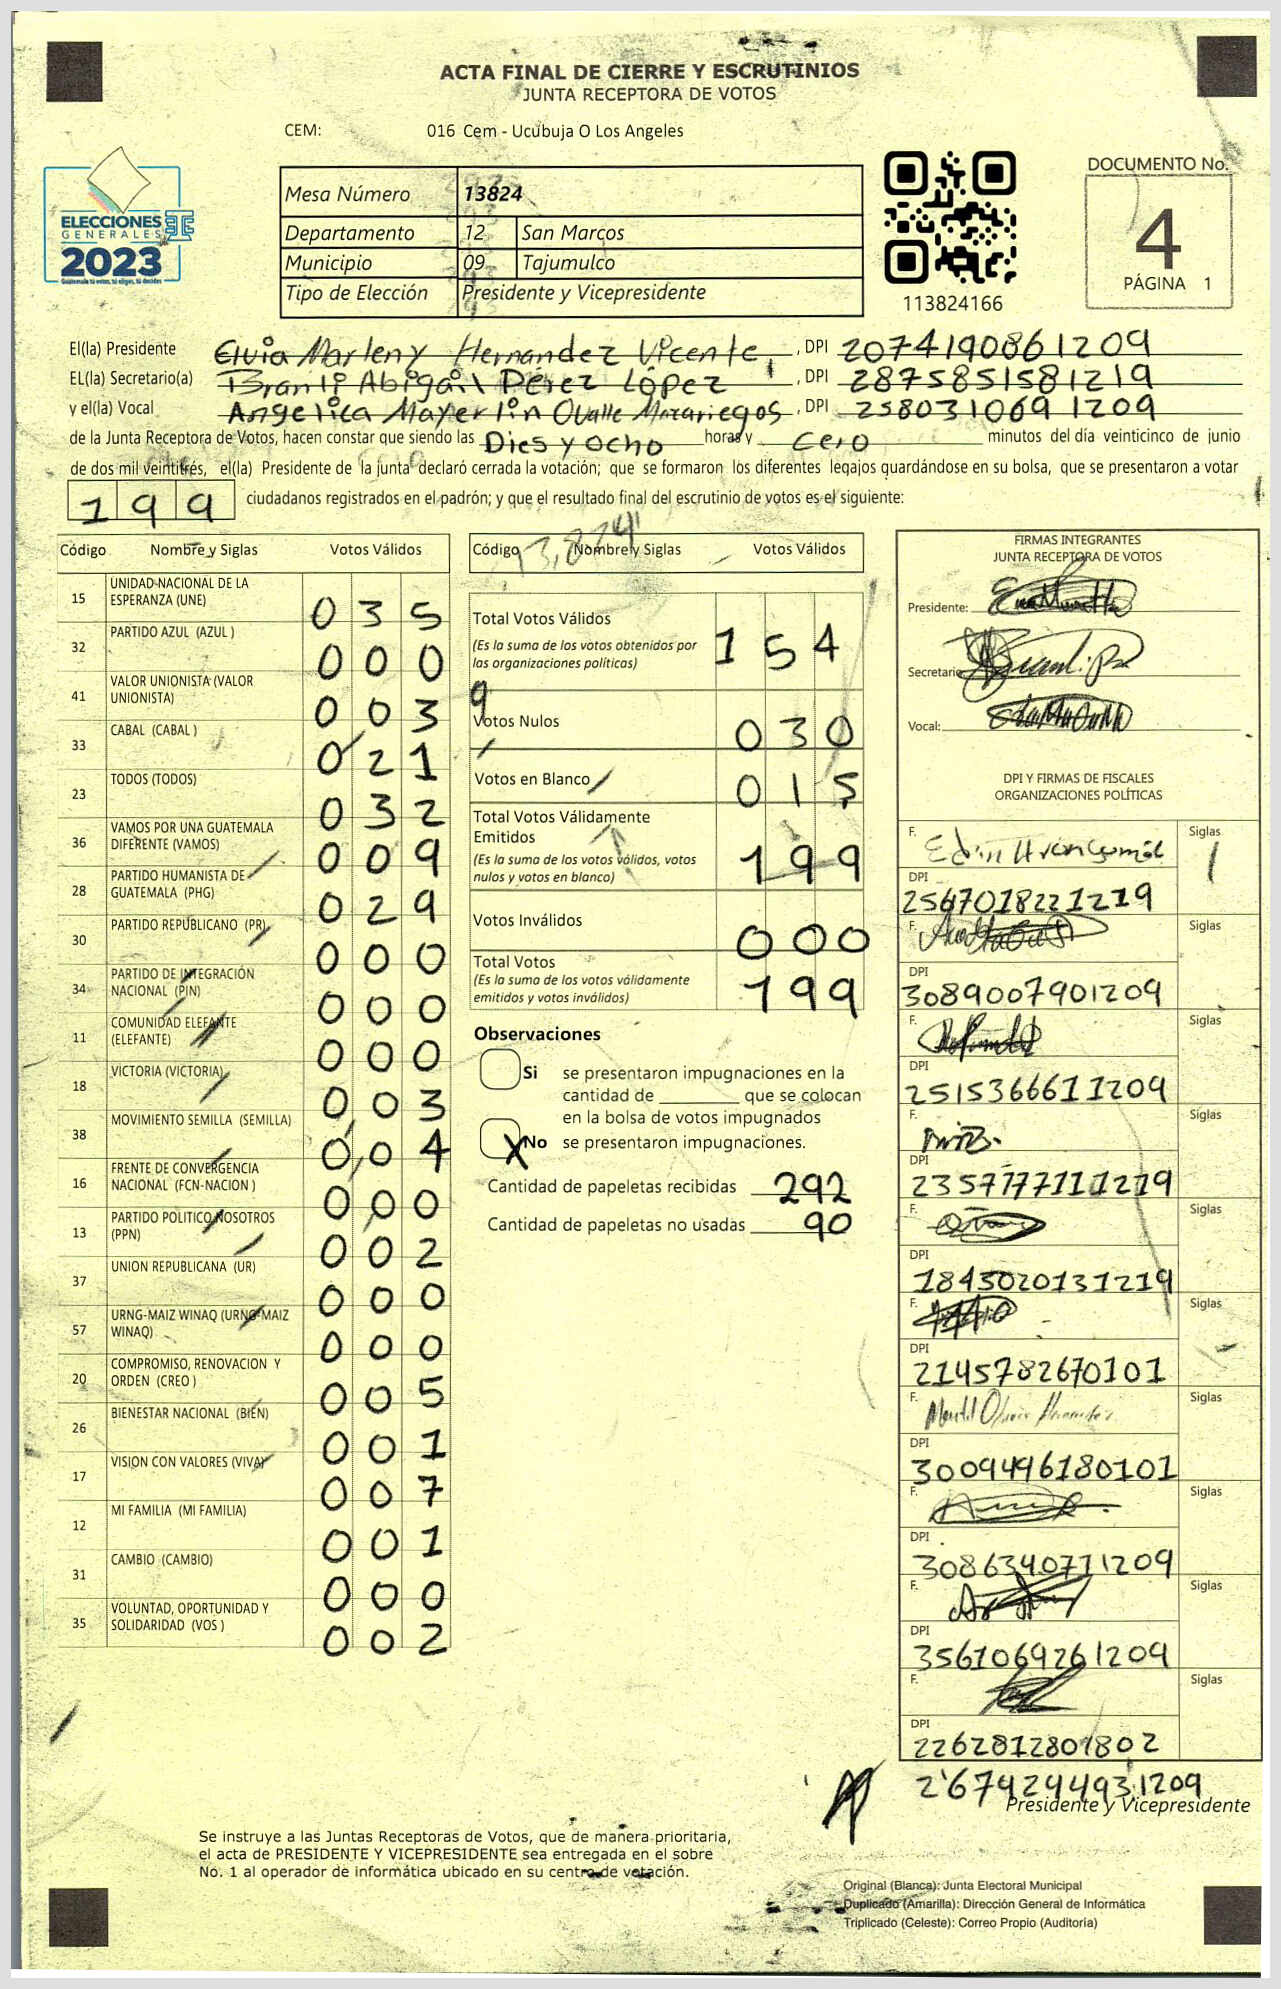 ACTA FINAL DE CIERRE Y ESCRUTINIOS
JUNTA RECEPTORA DE VOTOS
CEM: 016 Cem - Ucubuja O Los Angeles
ELECCIONES
GENERALES
2023
Mesa Número 13824
Departamento 12 San Marcos
Municipio 09 Tajumulco
Tipo de Elección Presidente y Vicepresidente
113824166
DOCUMENTO No.
4
PÁGINA 1
El(la) Presidente Elvia Marleny Hernandez Vicente, DPI 2074190861209
EL(la) Secretario(a) Abigail Pérez López, DPI 2875851581219
y el(la) Vocal Angelica Mayerlin Ovalle Mazariegos, DPI 2580310691209
de la Junta Receptora de Votos, hacen constar que siendo las Dies y ocho horas y cero minutos del día veinticinco de junio
de dos mil veintitrés, el(la) Presidente de la junta declaró cerrada la votación; que se formaron los diferentes legajos guardándose en su bolsa, que se presentaron a votar
199 ciudadanos registrados en el padrón; y que el resultado final del escrutinio de votos es el siguiente:
Código Nombre y Siglas Votos Válidos
15 UNIDAD NACIONAL DE LA ESPERANZA (UNE) 035
32 PARTIDO AZUL (AZUL ) 000
41 VALOR UNIONISTA (VALOR UNIONISTA) 003
33 CABAL (CABAL ) 021
23 TODOS (TODOS) 032
36 VAMOS POR UNA GUATEMALA DIFERENTE (VAMOS) 009
28 PARTIDO HUMANISTA DE GUATEMALA (PHG) 029
30 PARTIDO REPUBLICANO (PR) 000
34 PARTIDO DE INTEGRACIÓN NACIONAL (PIN) 000
11 COMUNIDAD ELEFANTE (ELEFANTE) 000
18 VICTORIA (VICTORIA) 003
38 MOVIMIENTO SEMILLA (SEMILLA) 004
16 FRENTE DE CONVERGENCIA NACIONAL (FCN-NACION ) 000
13 PARTIDO POLITICO NOSOTROS (PPN) 002
37 UNION REPUBLICANA (UR) 000
57 URNG-MAIZ WINAQ (URNG-MAIZ WINAQ) 000
20 COMPROMISO, RENOVACION Y ORDEN (CREO ) 005
26 BIENESTAR NACIONAL (BIEN) 001
17 VISION CON VALORES (VIVA) 007
12 MI FAMILIA (MI FAMILIA) 001
31 CAMBIO (CAMBIO) 000
35 VOLUNTAD, OPORTUNIDAD Y SOLIDARIDAD (VOS ) 002
13,824
Código Nombre y Siglas Votos Válidos
Total Votos Válidos 154
(Es la suma de los votos obtenidos por
las organizaciones políticas)
9
Votos Nulos 030
Votos en Blanco 015
Total Votos Válidamente
Emitidos 199
(Es la suma de los votos válidos, votos
nulos y votos en blanco)
Votos Inválidos 000
Total Votos 199
(Es la suma de los votos válidamente
emitidos y votos inválidos)
Observaciones
Si se presentaron impugnaciones en la
cantidad de ________ que se colocan
en la bolsa de votos impugnados
X No se presentaron impugnaciones.
Cantidad de papeletas recibidas 292
Cantidad de papeletas no usadas 90
FIRMAS INTEGRANTES
JUNTA RECEPTORA DE VOTOS
Presidente:
Secretario
Vocal:
DPI Y FIRMAS DE FISCALES
ORGANIZACIONES POLÍTICAS
F. Siglas
DPI
2567018221219
F. Siglas
DPI
3089007901209
F. Siglas
DPI
2515366611209
F. Siglas
DPI
2357777111219
F. Siglas
DPI
1845020131219
F. Siglas
DPI
2145782670101
F. Siglas
DPI
3009496180101
F. Siglas
DPI
3086340771209
F. Siglas
DPI
3561069261209
F. Siglas
DPI
2262812801802
2674294931209
Presidente y Vicepresidente
Se instruye a las Juntas Receptoras de Votos, que de manera prioritaria,
el acta de PRESIDENTE Y VICEPRESIDENTE sea entregada en el sobre
No. 1 al operador de informática ubicado en su centro de votación.
Original (Blanca): Junta Electoral Municipal
Duplicado (Amarilla): Dirección General de Informática
Triplicado (Celeste): Correo Propio (Auditoría)